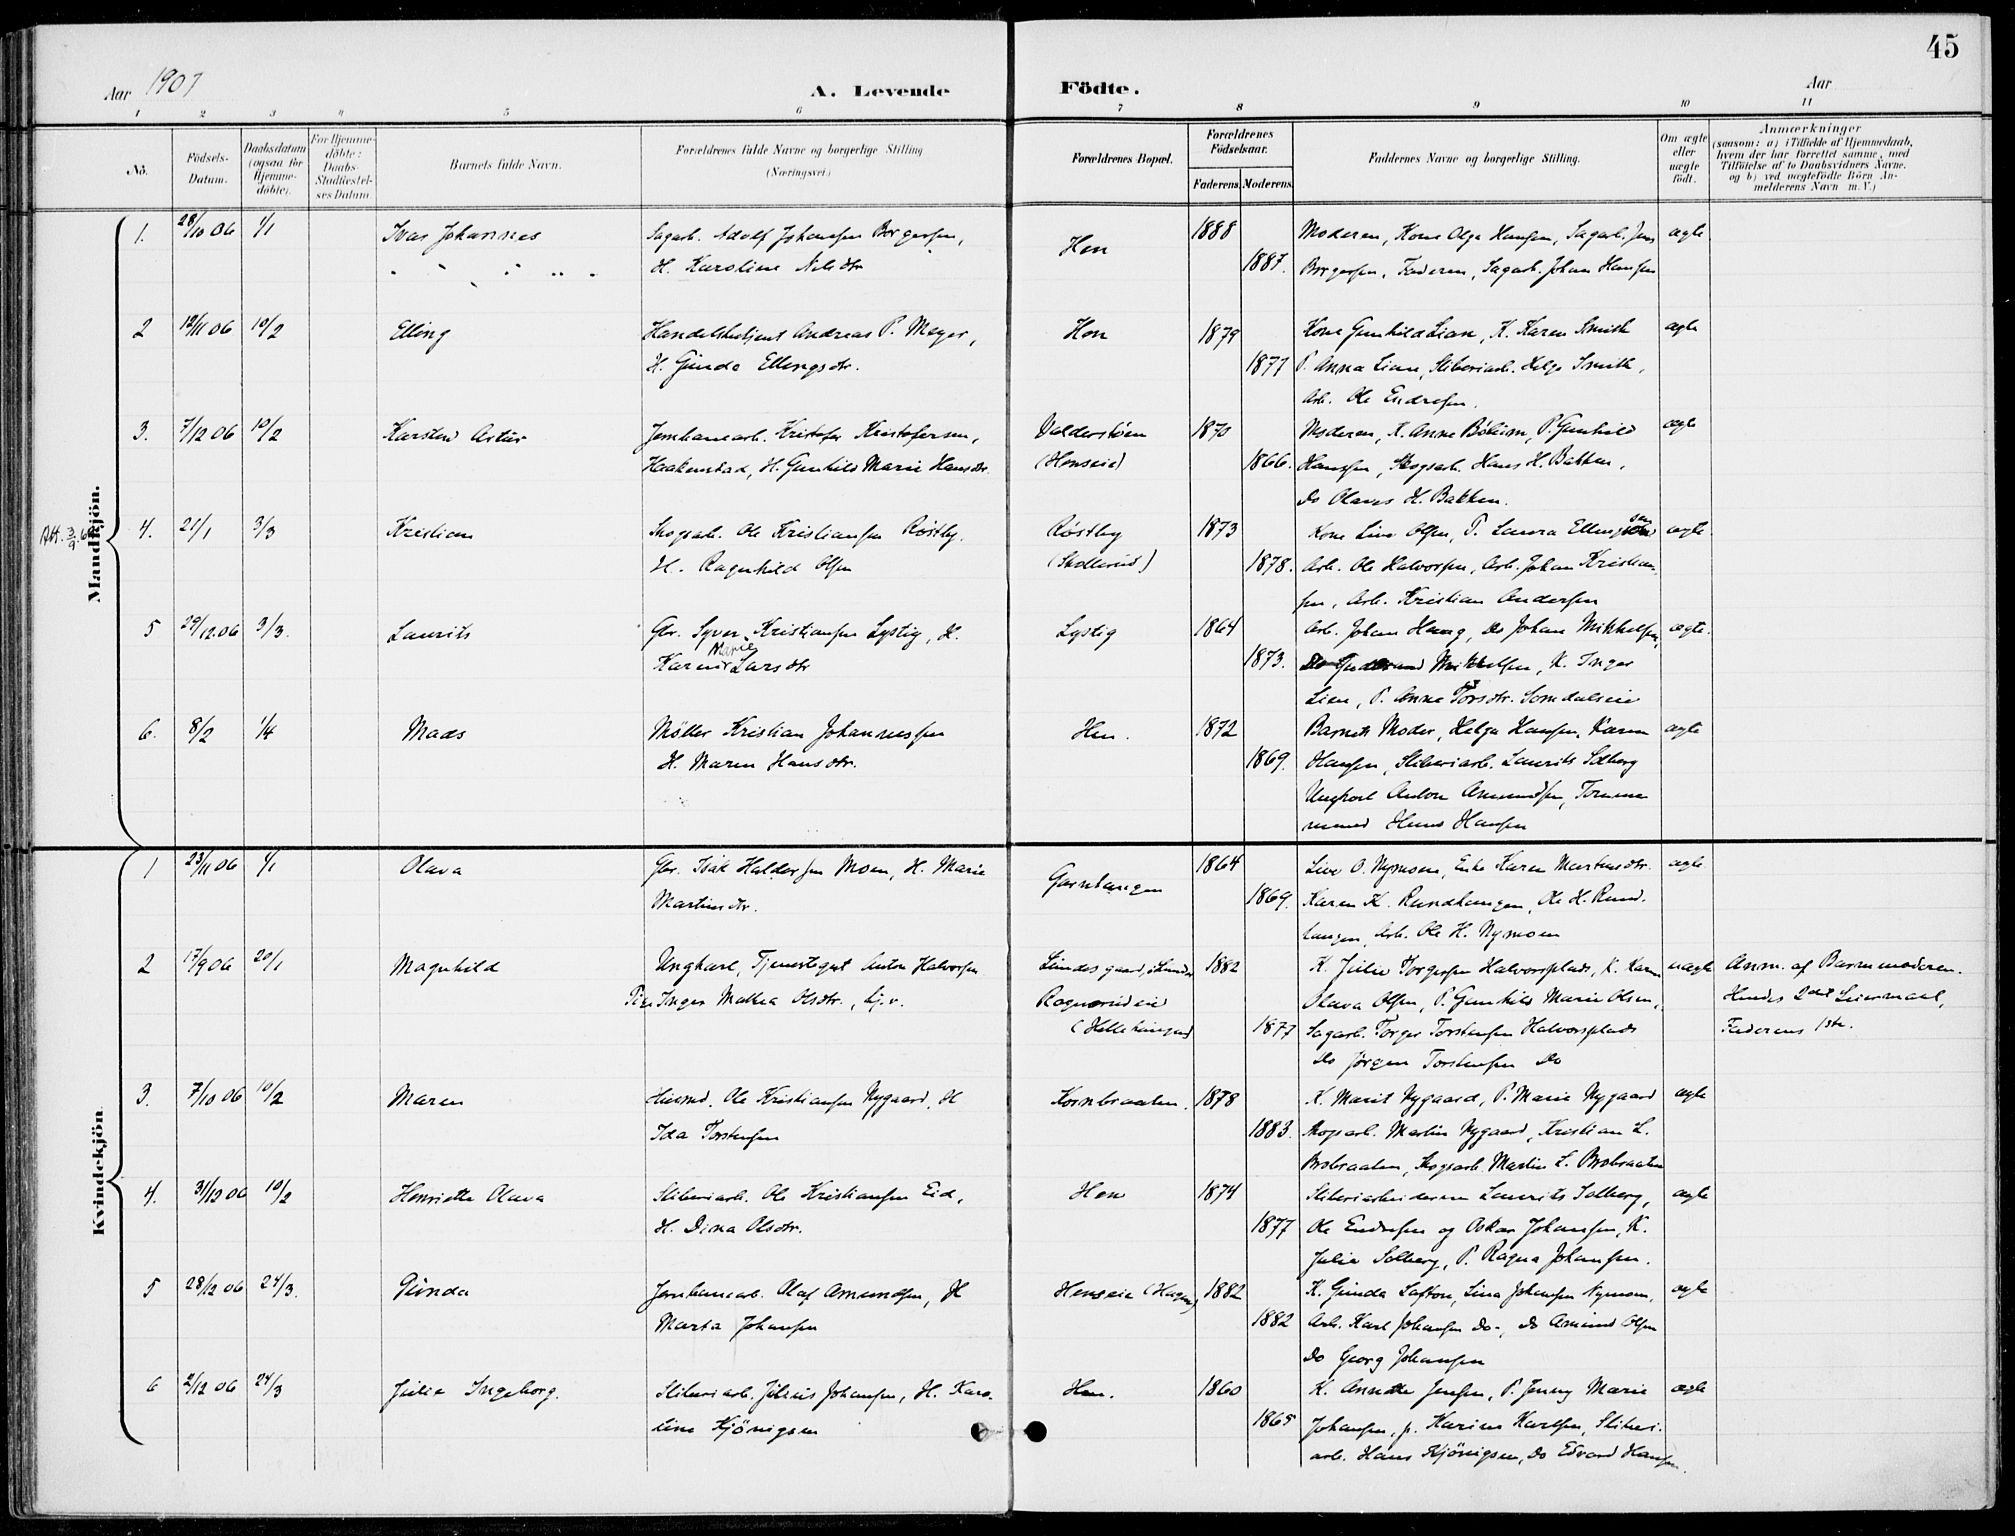 45
Aar 1907
A. Levende Födte.
Aar
1 2 3 4 5 6 7 8 9 10 11
Nö.
Födsels-Datum.
Daabsdatum (ogsaa for Hjemme-döbte).
For Hjemme-döbte: Daabs-Stadfæstel-ses Datum
Barnets fulde Navn.
Forældrenes fulde Navne og borgerlige Stilling (Næringsvei.)
Forældrenes Bopæl.
Forældrenes Födselsaar.
Faderens. Moderens.
Faddernes Navne og borgerlige Stilling.
Om ægte eller uægte födt.
Anmærkninger (saasom: a) i Tilfælde af Hjemmedaab, hvem der har forrettet samme, med Tilföielse af to Daabsvidners Navne, og b) ved uægtefödte Börn An-melderens Navn m. V.)
Mandkjön.
1. 28/10 06 1/1 Ivar Johannes Sagarb. Adolf Johansen Borgersen, Hen 1888 Moderen, Kone Olga Hansen, Sagarb. Jens ægte
H. Karoline Nilsdtr 1887. Borgersen, Faderen, Sagarb. Johan Hansen
2 12/11 06 10/2 Elling Handelsbetjent Andreas P. Meyer, Hen 1879 Kone Gunhild Lian, K. Karen Smith ægte
H. Gunda Ellingsdtr. 1877 P. Anna Lian, Sliberiarb. Helge Smith,
Arb. Ole Endresen.
3. 7/12 06 10/2 Karsten Artur Jernbanearb. Kristofer Kristofersen, Valderstøen 1870 Moderen, K. Anne Bøheim, P. Gunhild ægte
Haakenstad, H. Gunhild Marie Hansdtr. (Henseie) 1866. Hansen, Skogsarb. Hans H. Bakken,
Do Olaves H. Bakken.
4. 21/1 3/3 Kristian Skogsarb. Ole Kristiansen Røstby. Røstby 1873 Kone Live Olsen, P. Laura Ellingsen ægte
H. Ragnhild Olsen (Skollerud) 1878. Arb. Ole Halvorsen, Arb. Johan Kristian-
sen, Arb. Kristian Andersen
5 29/12 06 3/3. Laurits Gbr. Syver Kristiansen Lystig, H. Lystig 1864 Arb. Johan Haug, Do Johan Mikkelsen, ægte.
Karen Marie Larsdtr 1873. Do Gudmund Mikkelsen, K. Inger
Lien, P. Anne Torsdtr. Somdalseie
6. 8/2 1/4 Mads Møller Kristian Johannessen Hen. 1872 Barnets Moder, Helga Hansen, Karen ægte
H. Maren Hansdtr. 1869. Hansen, Sliberiarb. Laurits Solberg
Ungkarl Anton Amundsen, Tømmer-
mand Hans Hansen
Kvindekjön.
1 23/11 06 1/1 Olava Gbr. Isak Haldorsen Moen, H. Marie Garntangen 1864 Live O. Nymoen, Enke Karen Martinsdtr. ægte
Martinsdtr. 1869. Karen K. Rundtangen, Ole H. Rund-
tangen, Arb. Ole H. Nymoen
2 17/9 06 20/1 Magnhild Ungkarl, Tjenestegut Anton Halvorsen Lundes gaard, Lunder 1882 K. Julie Torgersen Halvorsplads, K. Karen uægte Anm. af Barnemoderen.
Pike Inger Mathea Olsdtr., hj.v. Ragnerudeie Olava Olsen, P. Gunhild Marie Olsen, Hendes 2det Leiermaal,
(Halletangen) 1877 Sagarb. Torger Torstensen Halvorsplads Faderens 1ste.
Do Jørgen Torstensen Do
3. 7/10 06 10/2 Maren Husmd. Ole Kristiansen Nygaard, H Kornbraaten. 1878 K. Marit Nygaard, P. Marie Nygaard ægte
Ida Torstensen 1883. Skogsarb. Martin Nygaard, Kristian L.
Brobraaten, Skogsarb. Martin L. Brobraaten
4. 31/12 06 10/2 Henriette Olava Sliberiarb. Ole Kristiansen Eid, Hen 1874 Sliberiarbeiderne Laurits Solberg, ægte
H. Dina Olsdtr. 1877 Ole Endresen og Oskar Johansen, K.
Julie Solberg, P. Ragna Johansen.
5 28/12 06 24/3. Gunda Jernbanearb. Olaf Amundsen, H Henseie (Hagen) 1882 K. Gunda Lafton, Lina Johansen Nymoen, ægte
Marta Johansen 1882 Arb. Karl Johansen Do-, Do Amund Olsen
Do Georg Johansen
6 2/12 06 24/3 Julie Ingeborg. Sliberiarb. Julius Johansen, H. Karo- Hen. 1860 K. Annette Jensen, P. Jenny Marie ægte
line Kjönigsen 1865 Johansen, p. Karine Karlsen, Sliberi-
arb. Hans Kjönigsen, Do Edvard Hansen.